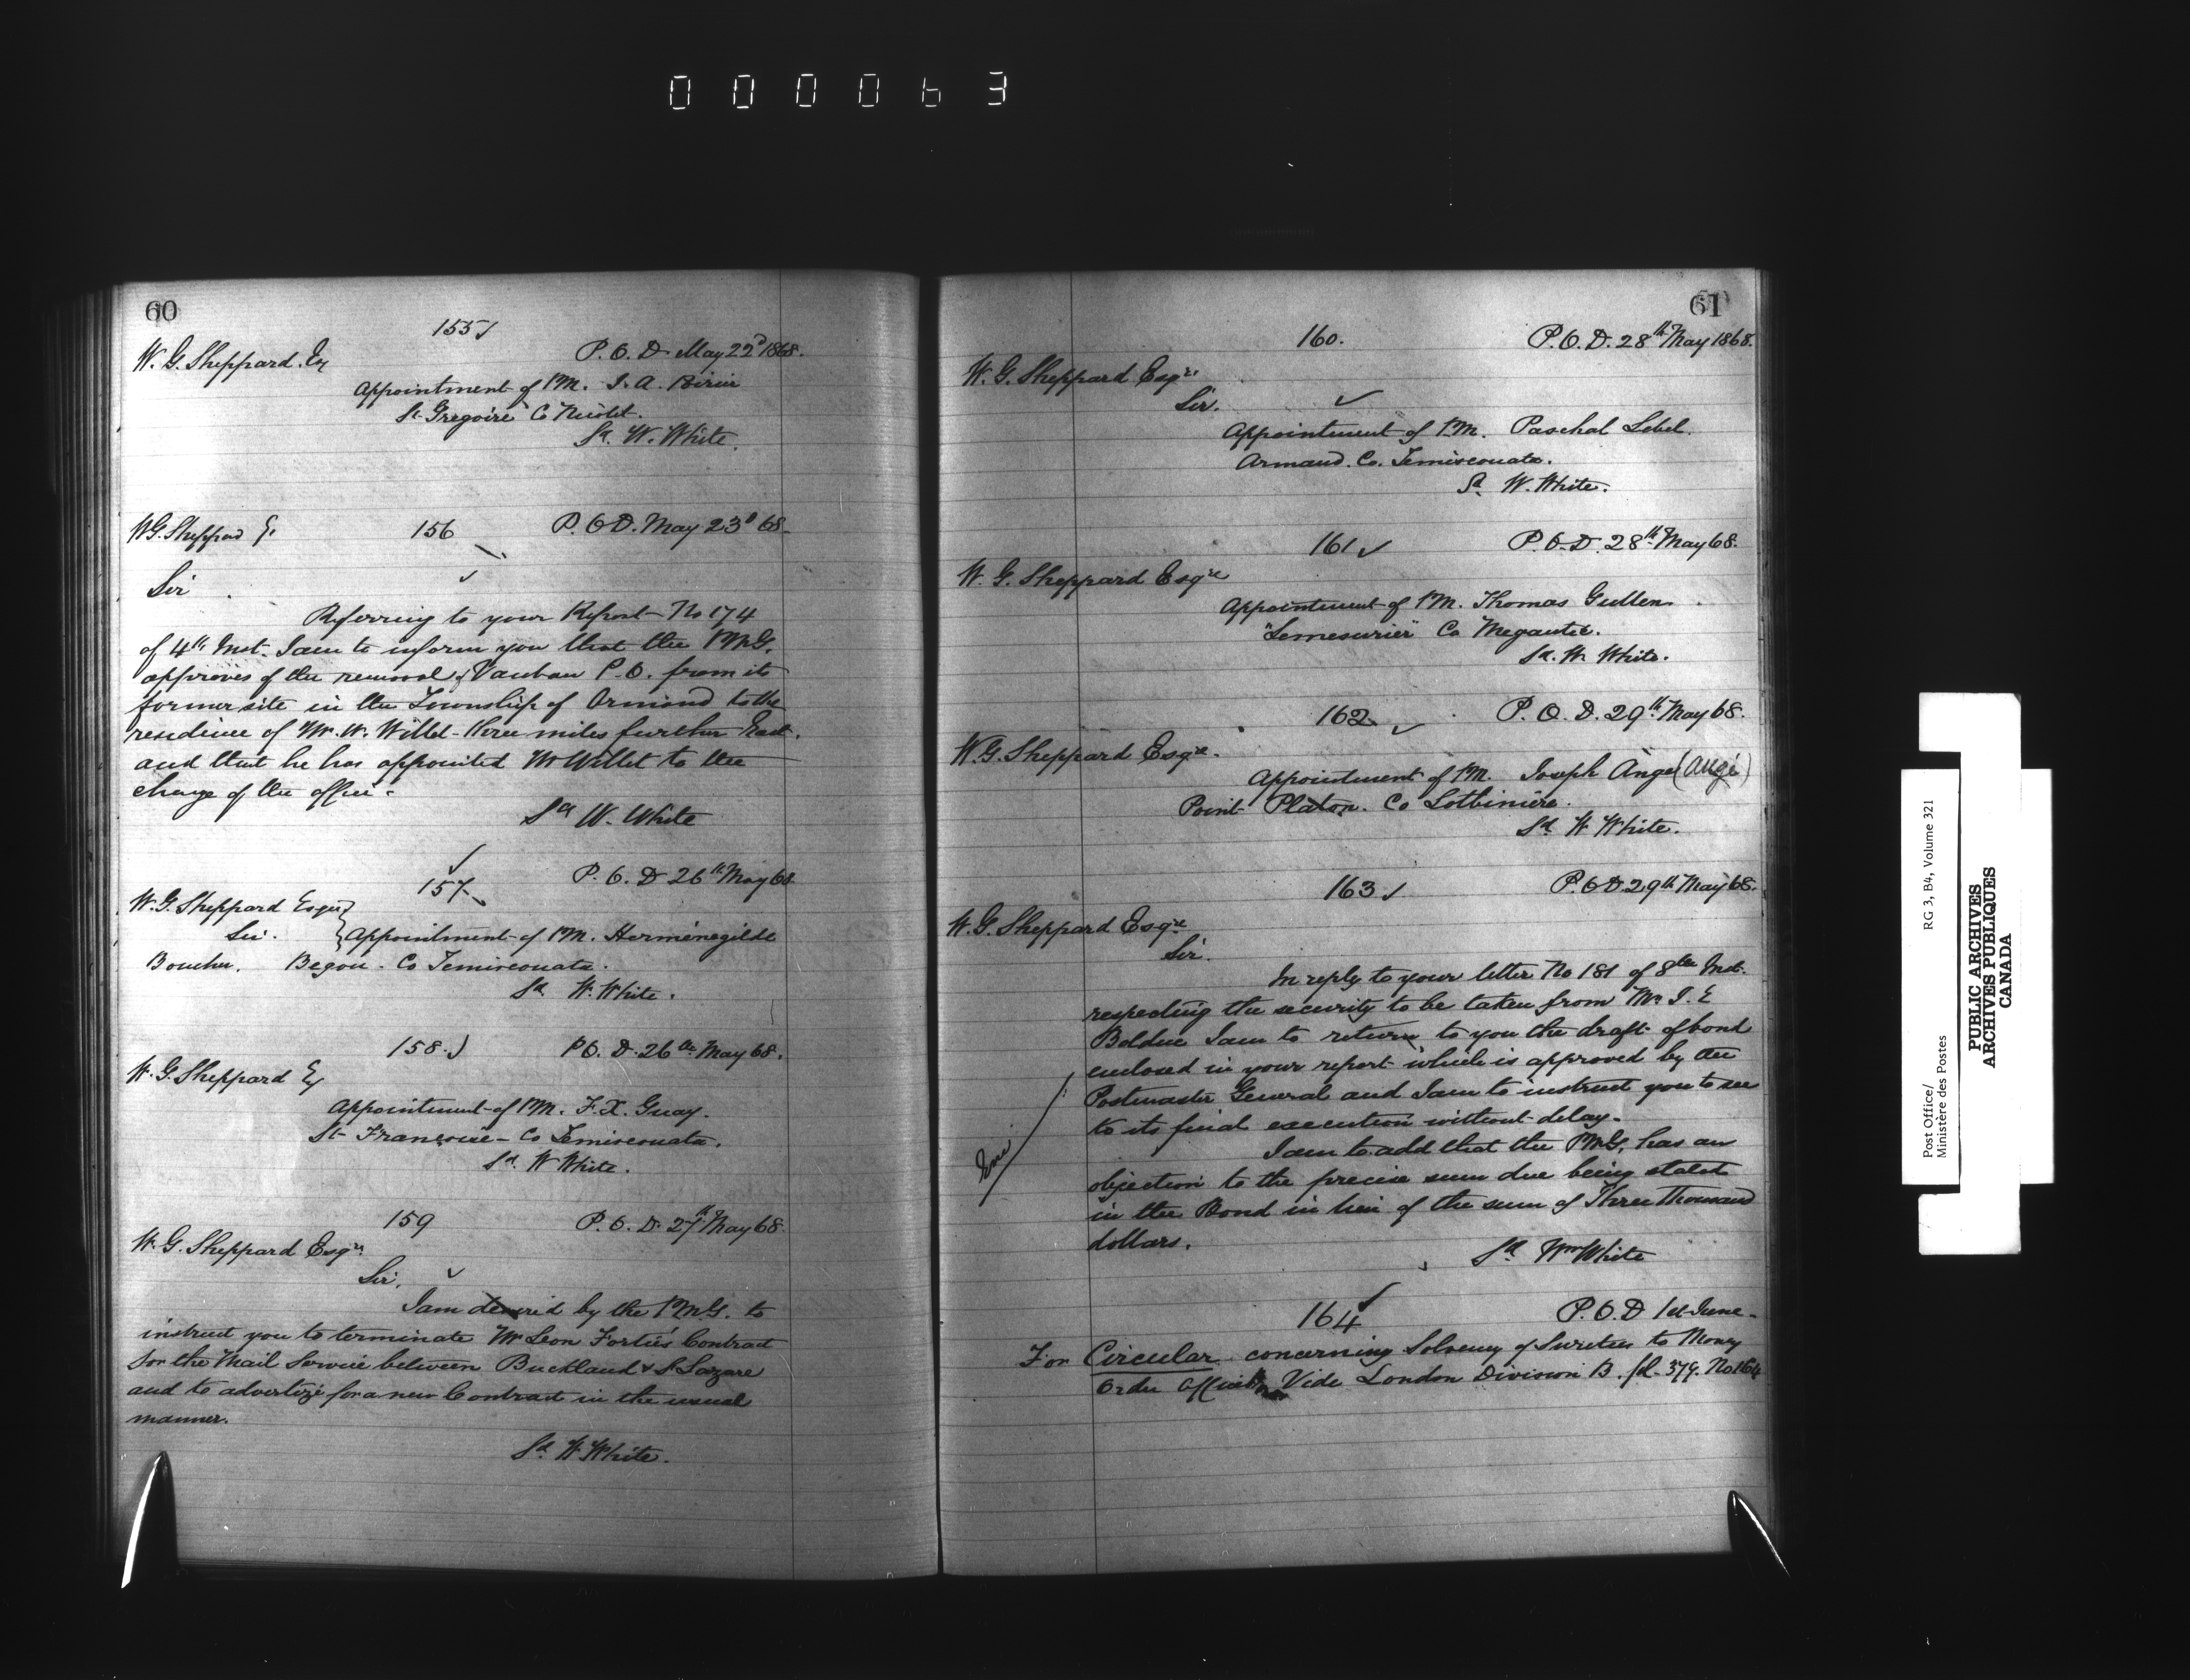 000063
60
155
W. G. Sheppard. Esq
P. O. D. May 22d 1868.
Appointment of P.M. J. A.
St Gregoire Co Nicolet.
Sd. W. White.
W G. Sheppard E. 156 P. O D. May 23d 68
Sir
Referring to your Report No 174
of 4th Inst. I am to inform you that the P.M.G.
approves of the removal of Vauban P. O. from its
former site in the Township of Ormond to the
residence of Mr. W. Willet three miles further East.
and that he has appointed Mr Willet to the
charge of the office.
Sd W. White
157. P. O. D 26th May 68
W. G. Sheppard Esqre
Sir. } Appointment of P.M. Hermenegilde
Boucher. Begon. Co Temisconata.
Sd. W. White.
158. P O. D. 26th May 68.
W. G. Sheppard Esq
Appointment of P.M. F. X. Guay.
St Francoise Co Temisconata.
Sd. W White.
159 P. O. D. 27th May 68.
W. G. Sheppard Esqre
Sir.
I am desired by the P.M.G. to
instruct you to terminate Mr Leon Fortier's Contract
for the Mail Service between Buckland & St Lazare
and to advertize for a new Contract in the usual
manner.
Sd. W. White.
61
160. P. O. D. 28th May 1868.
W. G. Sheppard Esqre
Sir.
Appointment of P.M. Paschal Lebel.
Armand. Co. Temisconata.
Sd. W. White.
161 P. O. D. 28th May 68.
W. G. Sheppard Esqre
Appointment of P.M. Thomas Gullen
"Lemesurier" Co Megantic.
Sd. W. White.
162 P. O. D. 29th May 68.
W. G. Sheppard Esqre.
Appointment of P.M. Joseph Ange (Augé)
Point Platon. Co Lotbiniere.
Sd. W White.
163 P. O D. 29th May 68.
W. G. Sheppard Esqre
Sir.
In reply to your letter No 181 of 8th Inst.
respecting the security to be taken from Mr. J. E
Bolduc I am to return to you the draft of bond
enclosed in your report which is approved by the
Postmaster General and I am to instruct you to see
to its final execution without delay.
Enc.
I am to add that the P.M.G. has an
objection to the precise sum due being stated
in the Bond in lieu of the sum of Three Thousand
dollars.
Sd Wm White
164 P. O. D 1st June
For Circular concerning Solvency of Sureties to Money
Order Offices Vide London Division B. fol. 379. No 164
Post Office/ RG 3, B4, Volume 321
Ministère des Postes
PUBLIC ARCHIVES
ARCHIVES PUBLIQUES
CANADA